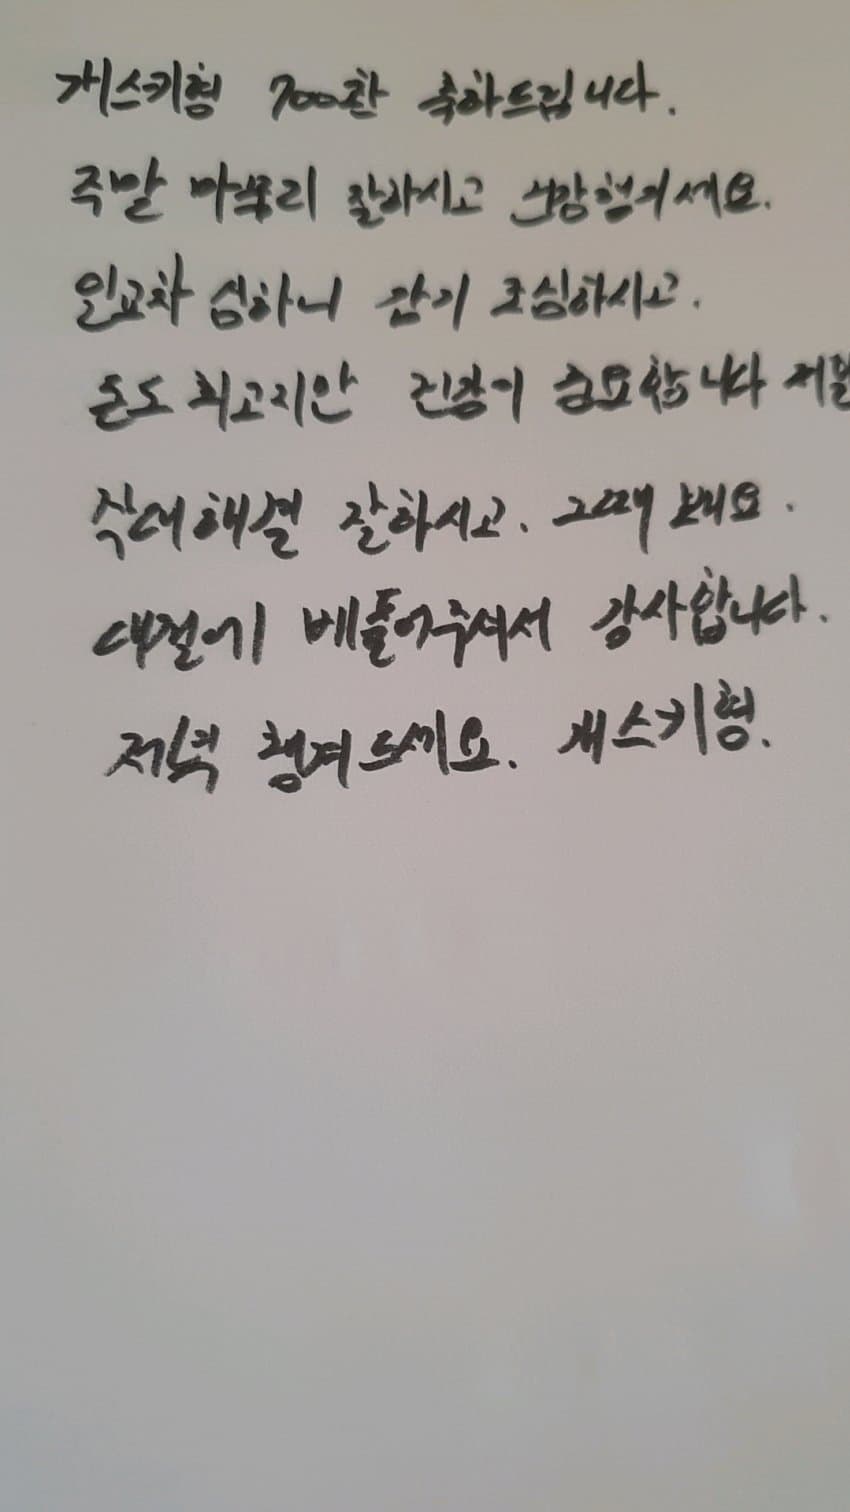 개스키형 700찬 축하드립니다.
주말 마무리 잘하시고 챙기세요.
일교차 심하니 감기 조심하시고.
돈도 최고지만 건강이 중요합니다
해결 잘하시고. 그때 봬요.
에 베풀어주셔서 감사합니다.
저녁 챙겨드세요. 개스키형.